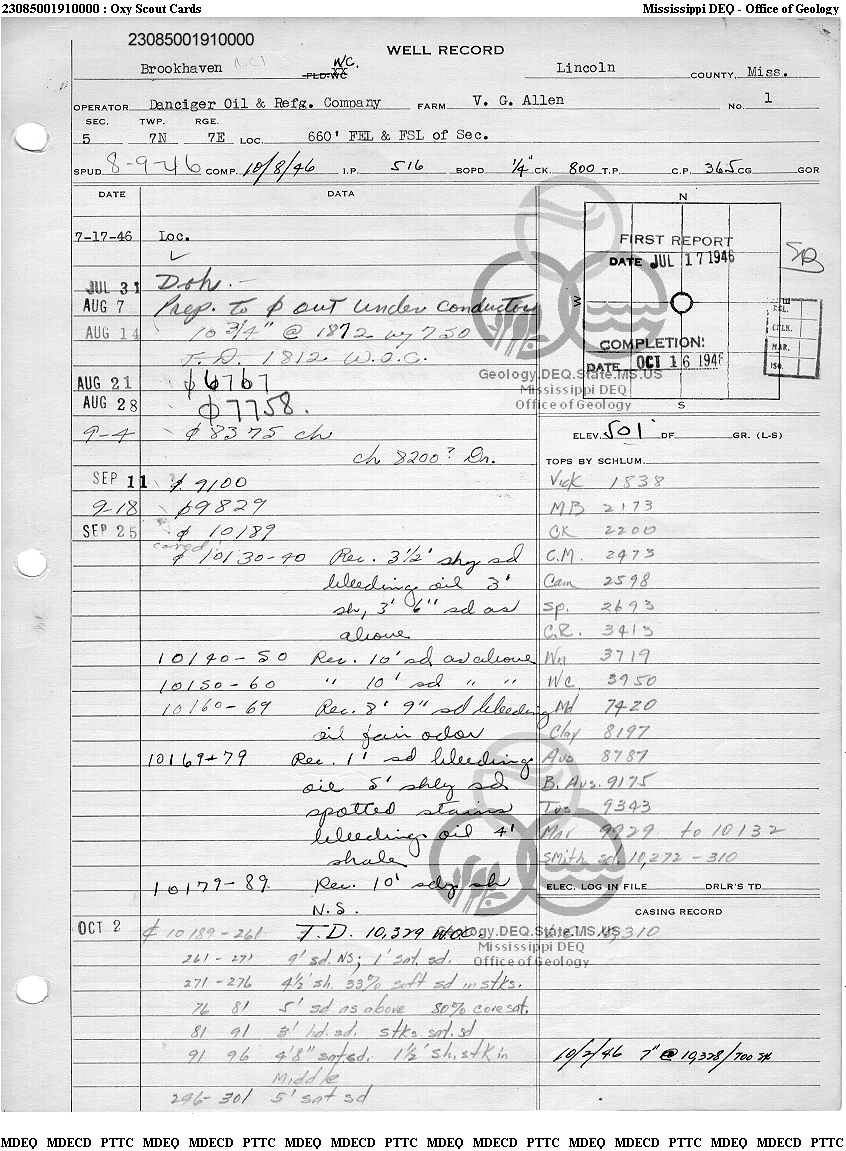 23085001910000 : Oxy Scout Cards Mississippi DEQ - Office of Geology
23085001910000
WELL RECORD
Brookhaven W.C. Lincoln COUNTY, Miss.
FLD-WC
OPERATOR Danciger Oil & Refg. Company FARM V. G. Allen No. 1
SEC. TWP. RGE.
5 7N 7E LOC. 660' FEL & FSL of Sec.
SPUD 8-9-46 COMP. 10/8/46 I.P. 516 BOPD 1/4" CK. 800 T.P. C.P. 365 CG GOR
DATE DATA
7-17-46 Loc.
JUL 31 Drlg.
AUG 7 Prep. to out under conductor
AUG 14 10 3/4" @ 1812 w/ 750
T.D. 1812 W.O.C.
AUG 21 6767
AUG 28 7758.
9-4 8375 ch
ch 8200? Dn.
SEP 11 9100
9-18 9829
SEP 25 10189
cored
10130-40 Rec. 3 1/2' shy sd
bleeding oil 3'
sh, 3' 6" sd as
above
10140-50 Rec. 10' sd as above
10150-60 " 10' sd " "
10160-69 Rec. 8' 9" sd bleeding
oil fair odor
10169-79 Rec. 1' sd bleeding
oil 5' shly sd
spotted stains
bleeding oil 4'
shale
10179-89 Rec. 10' sdy sh
N.S.
OCT 2 ₵ 10189-261 T.D. 10,329 W.O.C.
261-271 9' sd. NS; 1' sat. sd.
271-276 4 1/2' sh. 33% soft sd in stks.
76 81 5' sd as above 80% core sat.
81 91 3' hd. sd. stks. sat. sd
91 96 4'8" sat sd. 1 1/2' sh. stk in
Middle
296-301 5' sat sd
N
W
S
FIRST REPORT
DATE JUL 17 1946
COMPLETION:
DATE OCT 16 1946
COL.
CHK.
MAR.
Geology.DEQ.State.MS.US
Mississippi DEQ
Office of Geology
ELEV. 501' DF. GR. (L-S)
TOPS BY SCHLUM.
Vick 1838
MB 2173
CK 2200
C.M. 2473
Cam 2598
Sp. 2693
C.R. 3413
Wn 3719
WC 3950
Md 7420
Clay 8197
Aus 8787
B. Aus. 9175
Tus 9343
Mar 9929 to 10132
Smith sd. 10,272-310
ELEC. LOG IN FILE DRLR'S TD
CASING RECORD
10,310
Geology.DEQ.State.MS.US
Mississippi DEQ
Office of Geology
10/2/46 7" @ 10,328/700 sx
MDEQ MDECD PTTC MDEQ MDECD PTTC MDEQ MDECD PTTC MDEQ MDECD PTTC MDEQ MDECD PTTC MDEQ MDECD PTTC